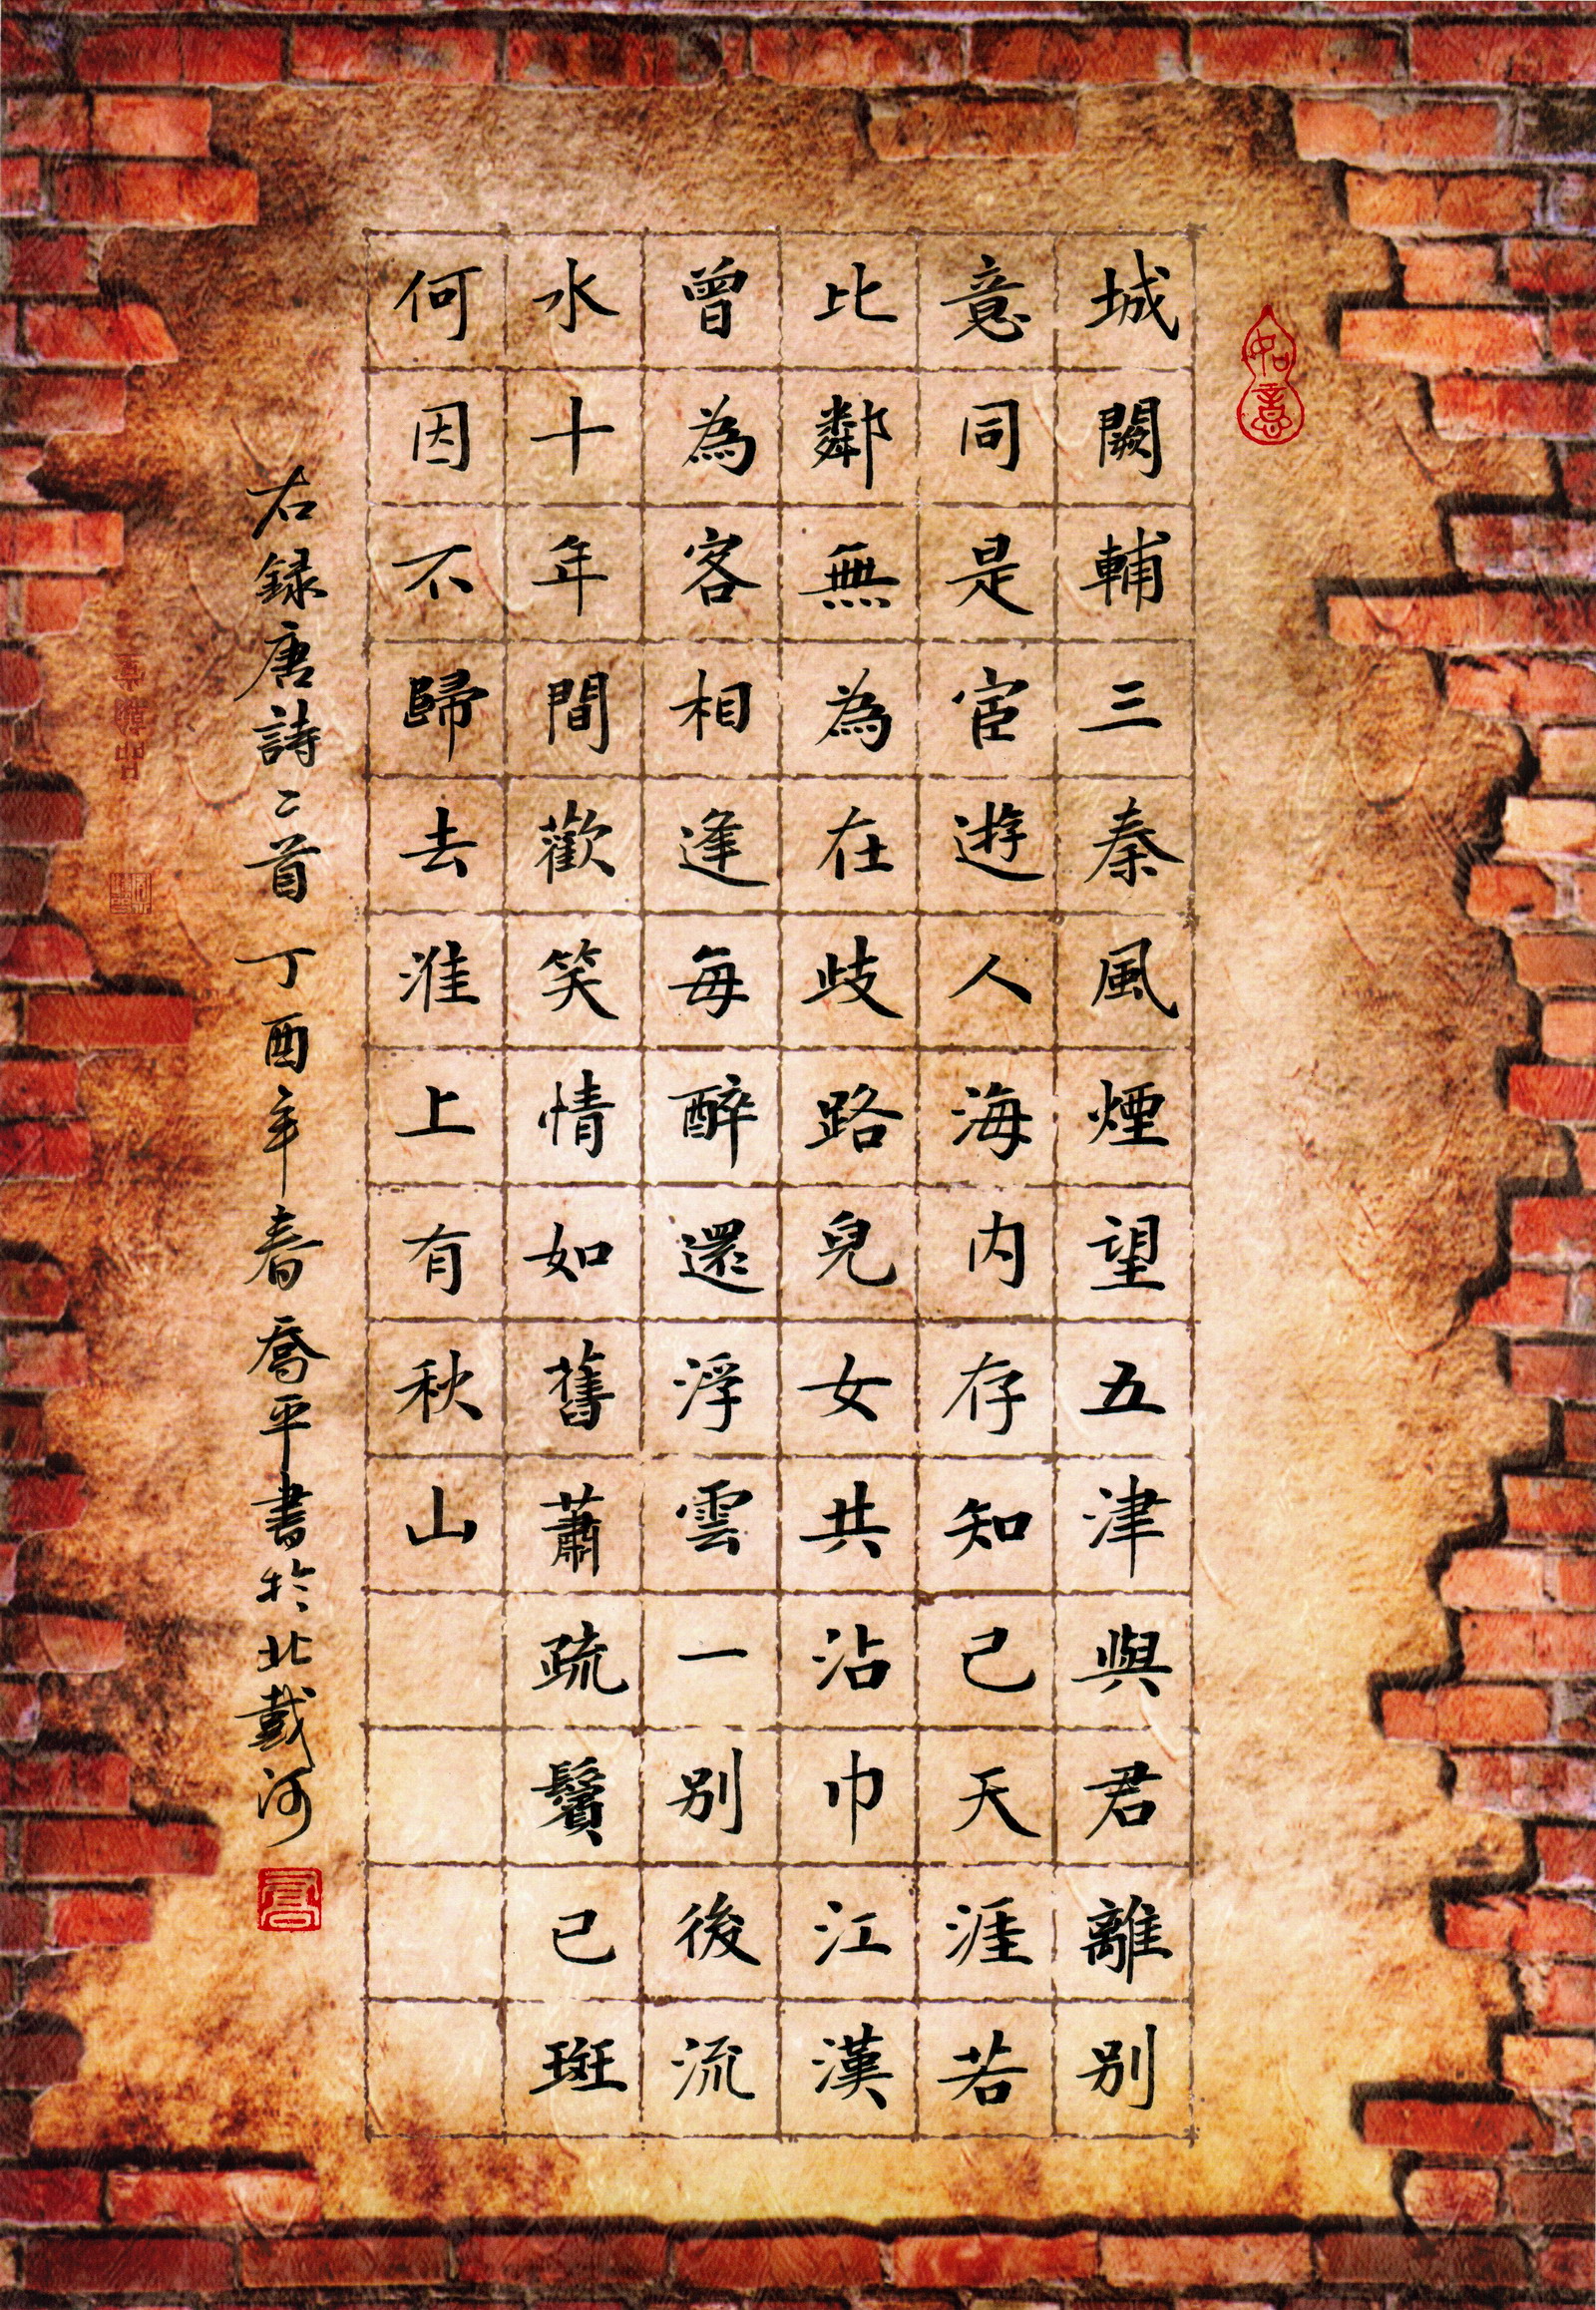 如意
城闕輔三秦風煙望五津與君離别
意同是宦遊人海内存知己天涯若
比鄰無為在歧路兒女共沾巾江漢
曾為客相逢每醉還浮雲一别後流
水十年間歡笑情如舊蕭疏鬢已斑
何因不歸去淮上有秋山
右録唐詩二首 丁酉年春 喬平書於北戴河